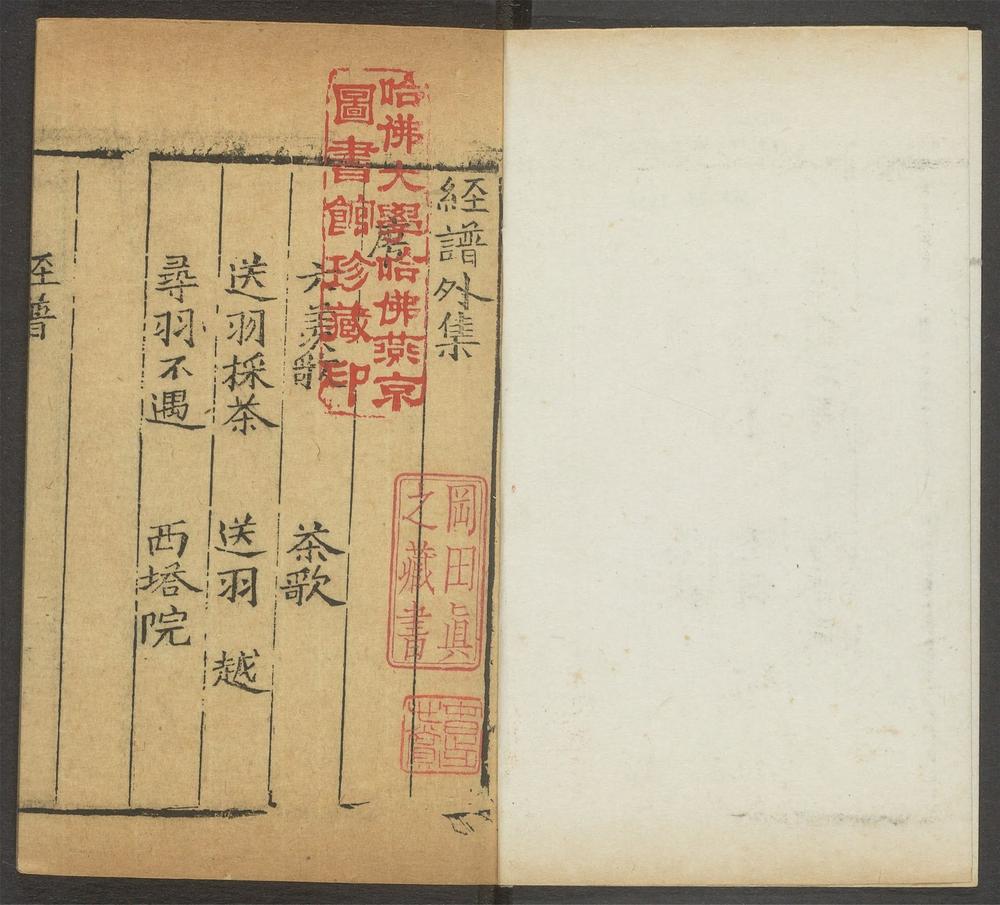 經譜外集
唐
六羨歌 茶歌
送羽採茶 送羽 越
尋羽不遇 西塔院
哈佛大學哈佛燕京
圖書館珍藏印
岡田眞
之藏書